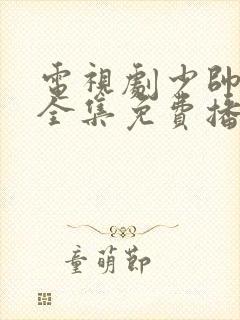 電視劇少帥
全集免費播
童萌節